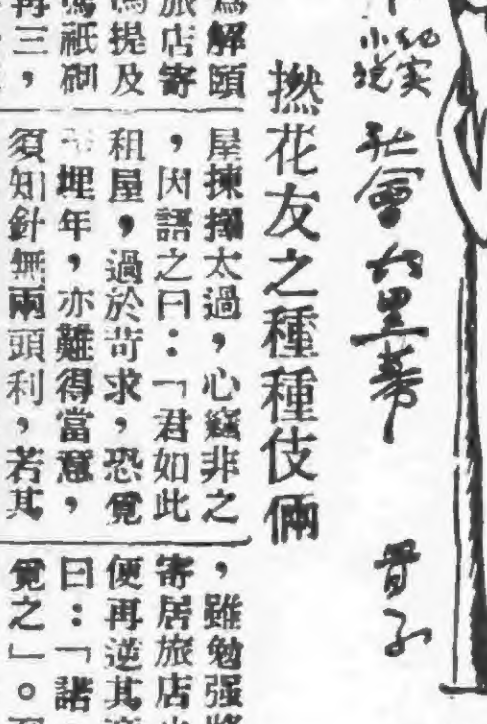 小説
社會
撚花友之種種伎倆
解頤
旅店寄
提及
祇
再三，
屋揀擇太過，心竊非之
，因語之曰：「君如此
租屋，過於苛求，恐覓
埋年，亦難得當意，
須知針無兩頭利，若其
，雖勉强
寄居旅店
便再逆其
曰：「諾
覓之」。